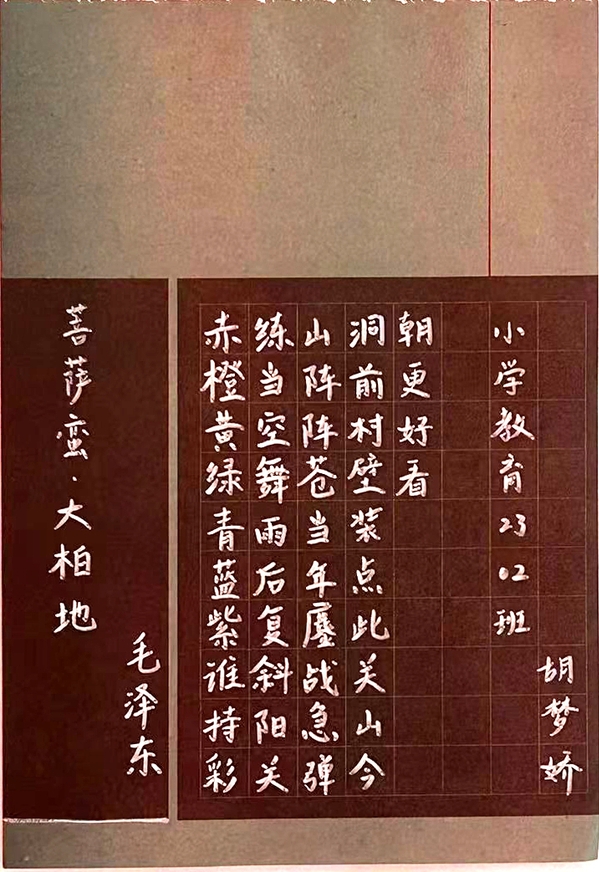 菩萨蛮·大柏地
毛泽东
赤橙黄绿青蓝紫谁持彩
练当空舞雨后复斜阳关
山阵阵苍当年鏖战急弹
洞前村壁装点此关山今
朝更好看
小学教育2302班
胡梦娇